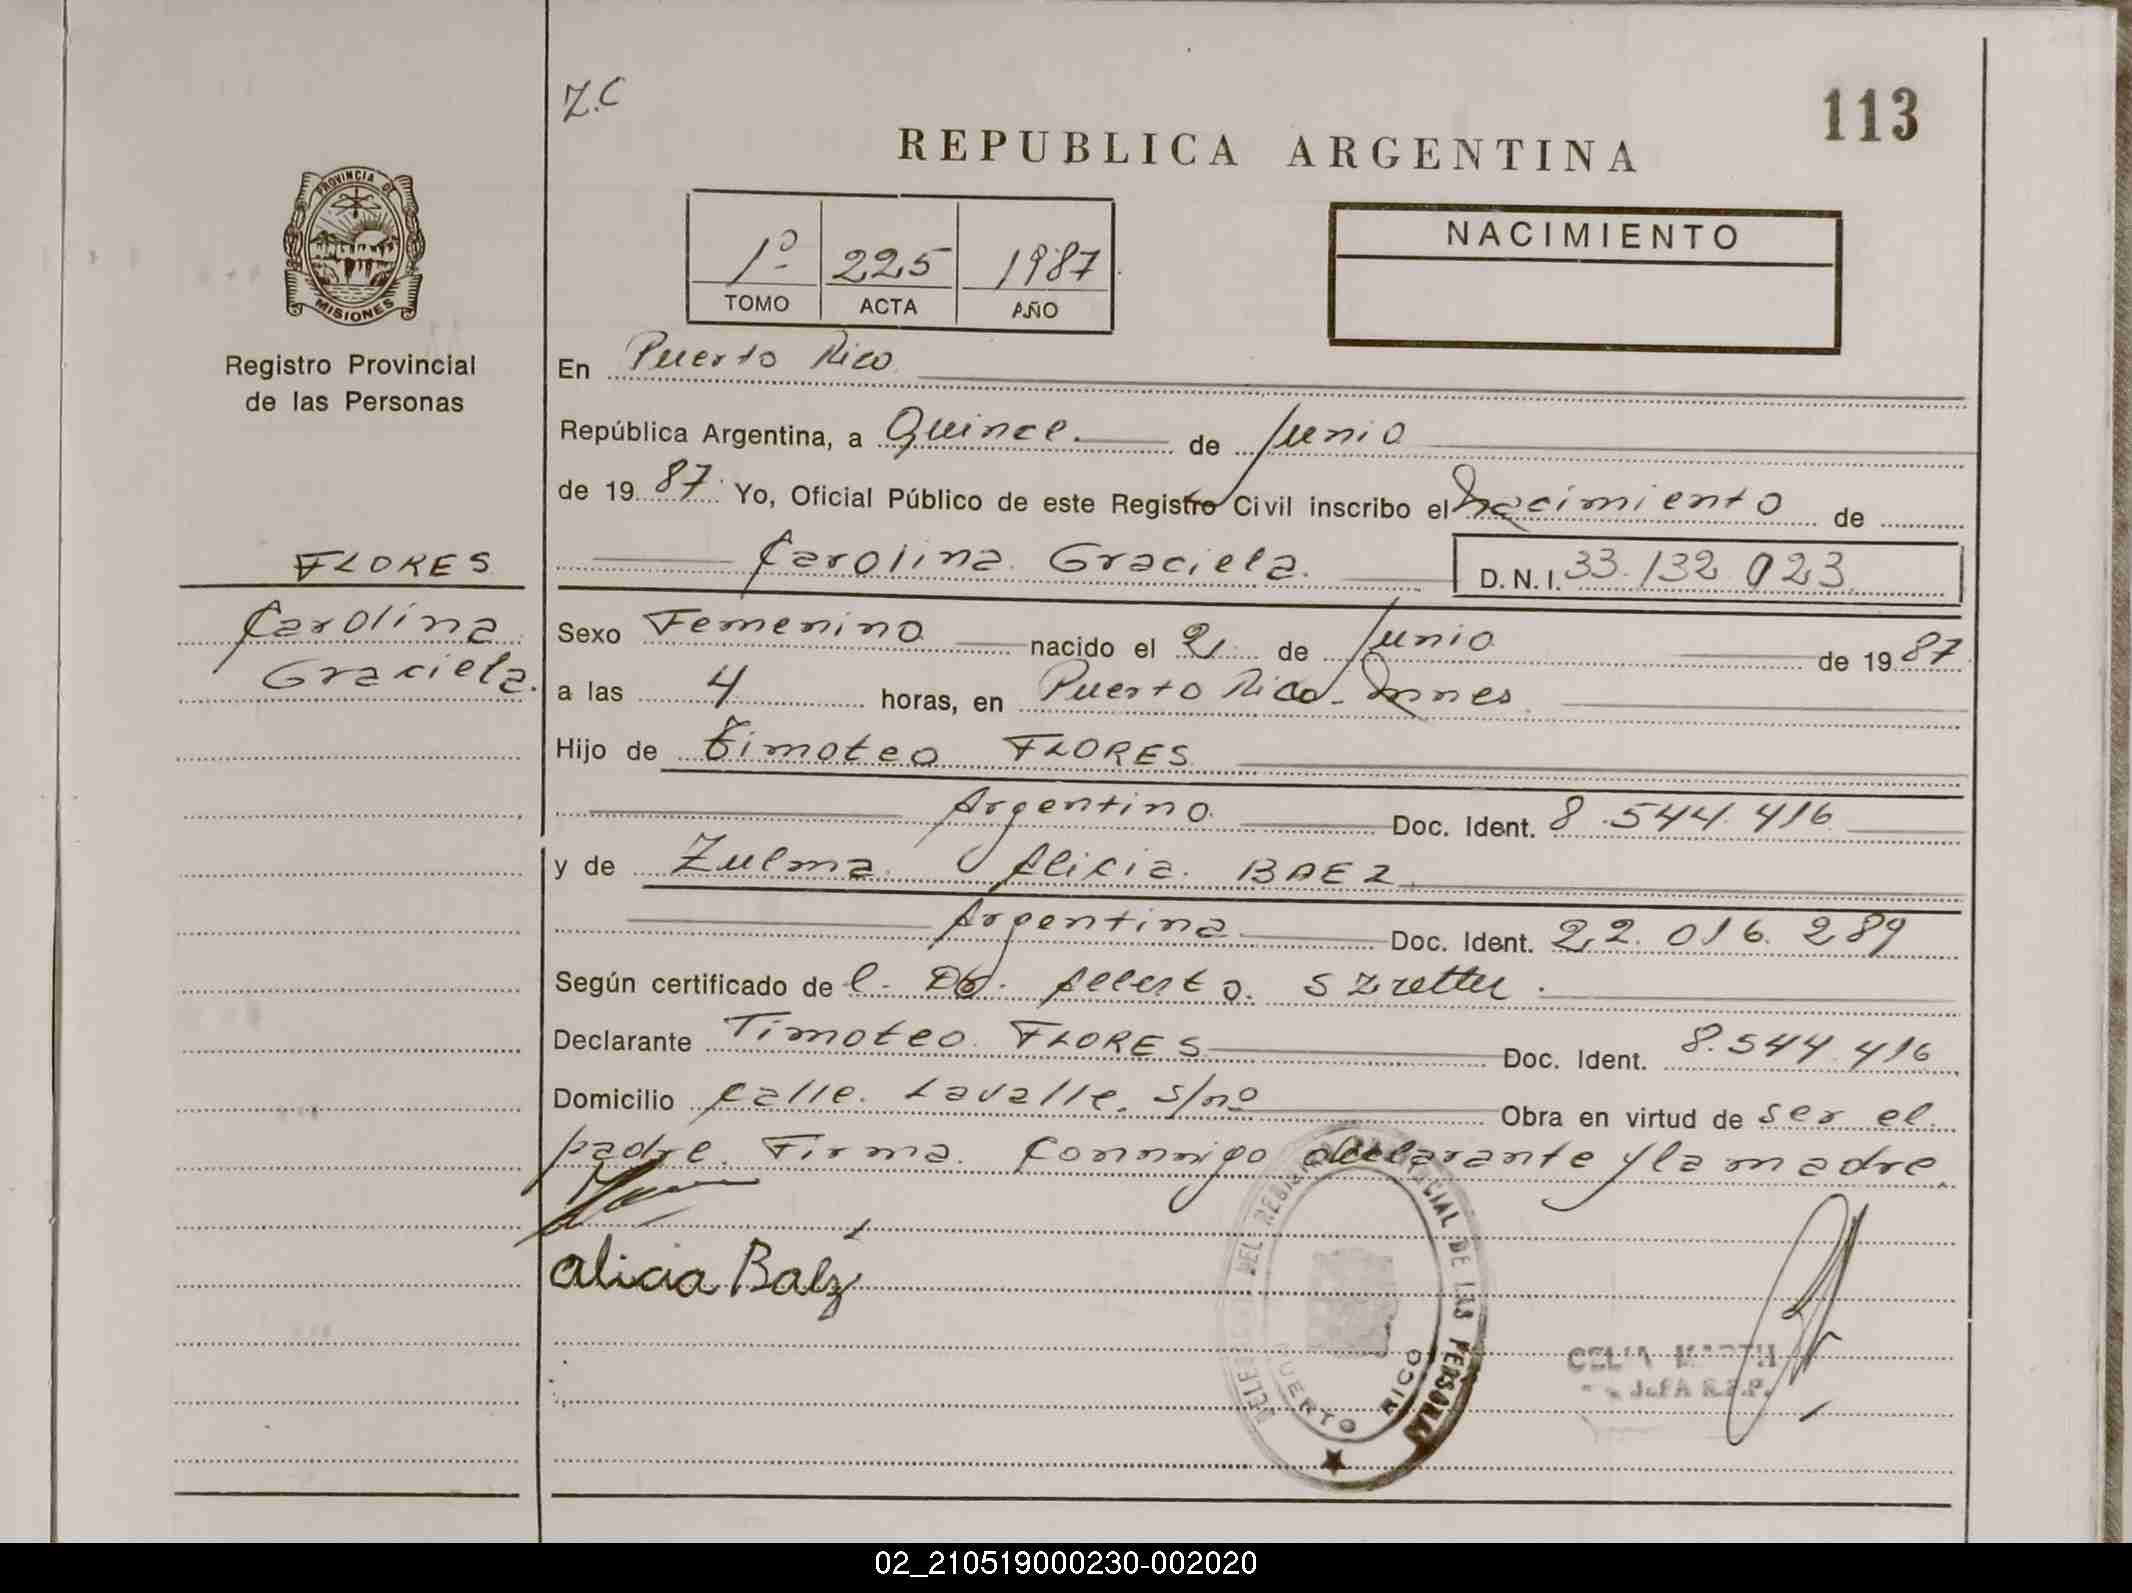 Z.C
113
REPUBLICA ARGENTINA
PROVINCIA DE MISIONES
Registro Provincial
de las Personas
1º 225 1987
TOMO ACTA AÑO
NACIMIENTO
En Puerto Rico
República Argentina, a Quince. de Junio
de 1987 Yo, Oficial Público de este Registro Civil inscribo el Nacimiento de
Carolina Graciela. D.N.I. 33.132.023
FLORES
Carolina
Graciela.
Sexo Femenino nacido el 2 de Junio de 1987
a las 4 horas, en Puerto Rico - Mnes
Hijo de Timoteo FLORES
Argentino Doc. Ident. 8.544.416
y de Zulma Alicia BAEZ
Argentina Doc. Ident. 22.016.289
Según certificado del Dr. Alberto Szretter.
Declarante Timoteo FLORES Doc. Ident. 8.544.416
Domicilio Calle Lavalle s/nº Obra en virtud de ser el
padre. Firma Conmigo declarante y la madre.
alicia Baez
DEL REGISTRO PROVINCIAL DE LAS PERSONAS
PUERTO RICO
CELIA
JEFA R.P.P.
02_210519000230-002020